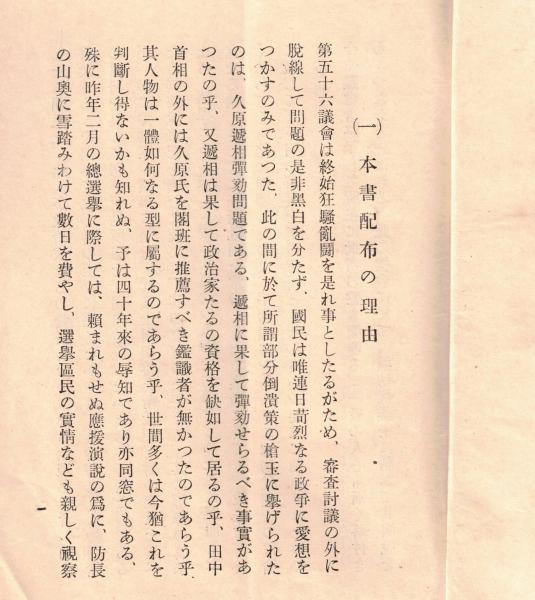 (一) 本書配布の理由
第五十六議會は終始狂騷亂鬪を是れ事としたるがため、審査討議の外に
脫線して問題の是非黑白を分たず、國民は唯連日苛烈なる政爭に愛想を
つかすのみであつた、此の間に於て所謂部分倒潰策の槍玉に擧げられた
のは、久原遞相彈劾問題である、遞相に果して彈劾せらるべき事實があ
つたの乎、又遞相は果して政治家たるの資格を缺如して居るの乎、田中
首相の外には久原氏を閣班に推薦すべき鑑識者が無かつたのであらう乎
其人物は一體如何なる型に屬するのであらう乎、世間多くは今猶これを
判斷し得ないかも知れぬ、予は四十年來の辱知であり亦同窓でもある、
殊に昨年二月の總選擧に際しては、賴まれもせぬ應援演說の爲に、防長
の山奧に雪踏みわけて數日を費やし、選擧區民の實情なども親しく視察